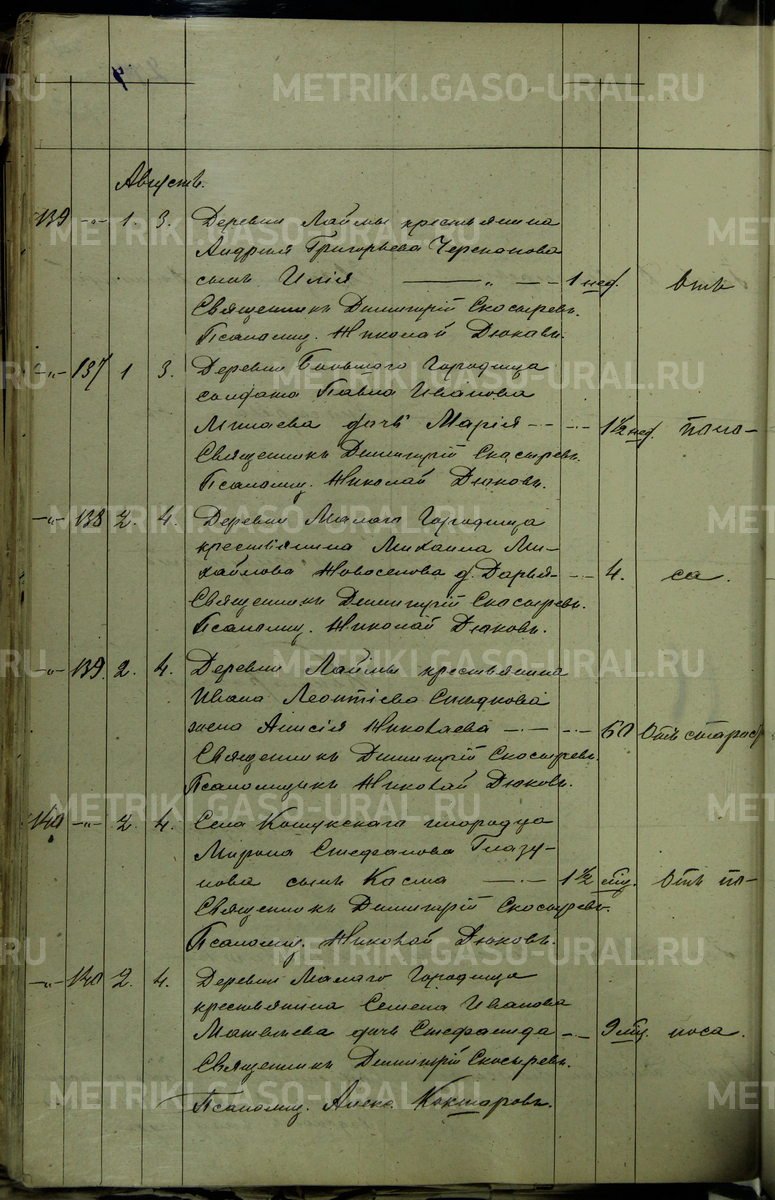 Августъ.
139 -"- 1. 3. Деревни Лаймы крестьянина
Андрея Григорьева
сынъ Илія — " — 1 нед. Отъ
Священникъ Димитрій Скосыревъ.
Псаломщ. Николай Дюковъ.
-"- 137 1 3. Деревни Большого Городища
солдата Павла Иванова
дочь Марія - - 1½ нед. поно-
Священникъ Димитрій Скосыревъ.
Псаломщ. Николай Дюковъ.
-"- 138 2. 4. Деревни Малаго Городища
крестьянина Михаила Ми-
хайлова Новоселова д. Дарья - - 4. са.
Священникъ Димитрій Скосыревъ.
Псаломщ. Николай Дюковъ.
-"- 139 2. 4. Деревни Лаймы крестьянина
Ивана Леонтіева
жена Анисія Николаева - - 60 Отъ старос
Священникъ Димитрій Скосыревъ.
Псаломщикъ Николай Дюковъ.
140 -"- 2. 4. Села Кошукскаго инородца
Мирона Стефанова Глазу-
нова сынъ Косма — 1½ мц. Отъ по-
Священникъ Димитрій Скосыревъ.
Псаломщ. Николай Дюковъ.
-"- 140 2. 4. Деревни Малаго Городища
крестьянина Семена Иванова
Матвѣева дочь Стефанида - - 9 мц. носа.
Священникъ Димитрій Скосыревъ.
Псаломщ. Алекс. Кокшаровъ.
METRIKI.GASO-URAL.RU